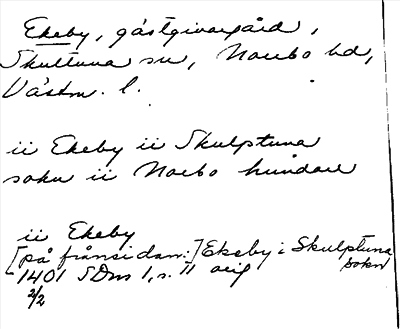 Ekeby, gästgivargård,
Skultuna sn, Norbo hd,
Västm. l.
ii Ekeby ii Skulptuna
sokn ii Norbo hundare
ii Ekeby
[på frånsidan:] Ekeby i Skulptuna
sokn
1401 SDns 1, s. 11 orig
2/2